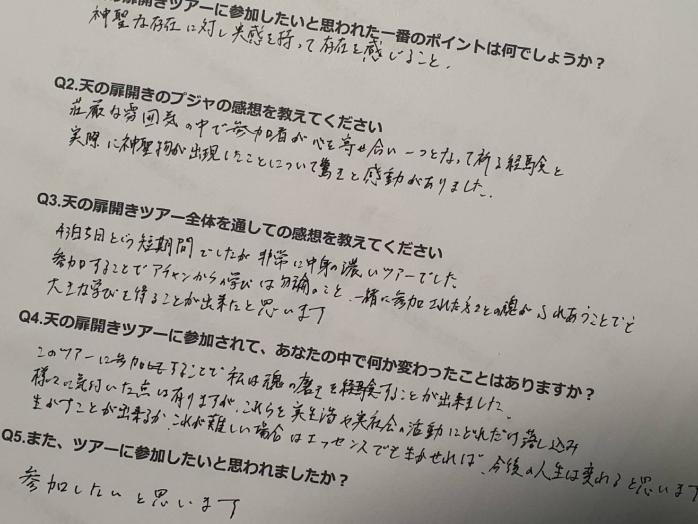 扉開きツアーに参加したいと思われた一番のポイントは何でしょうか？
神聖な存在に対し実感を持って存在を感じること。
Q2.天の扉開きのプジャの感想を教えてください
荘厳な雰囲気の中で参加者が心を寄せ合い一つとなって祈る経験と
実際に神聖物が出現したことについて驚きと感動がありました。
Q3.天の扉開きツアー全体を通しての感想を教えてください
4泊5日という短期間でしたが非常に中身の濃いツアーでした
参加することでアチャンからの学びは勿論のこと、一緒に参加された方々との魂がふれあうことでも
大きな学びを得ることが出来たと思います
Q4.天の扉開きツアーに参加されて、あなたの中で何か変わったことはありますか？
このツアーに参加することで私は魂の磨きを経験することが出来ました。
様々に気付いた点は有りますが、これらを実生活や実社会の活動にどれだけ落し込み
生かすことが出来るか、これが難しい場合はエッセンスでも生かせれば、今後の人生は変わると思います
Q5.また、ツアーに参加したいと思われましたか？
参加したいと思います